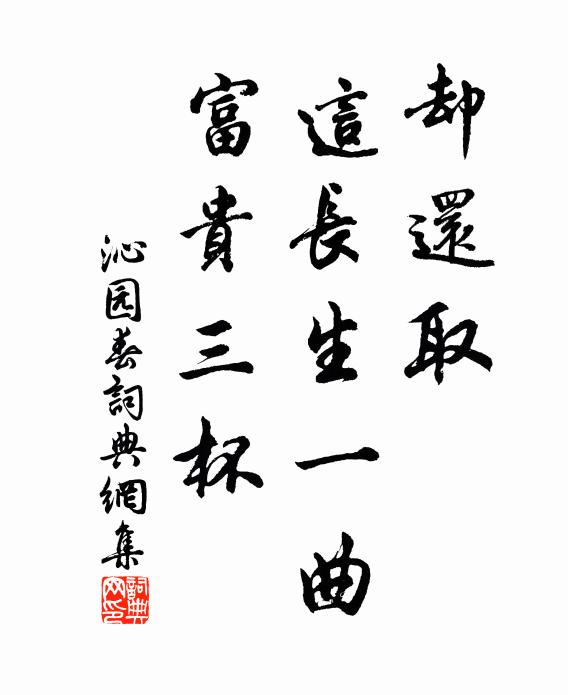 却還取
這長生一曲
富貴三杯
沁园春詞典網集
詞典
网印